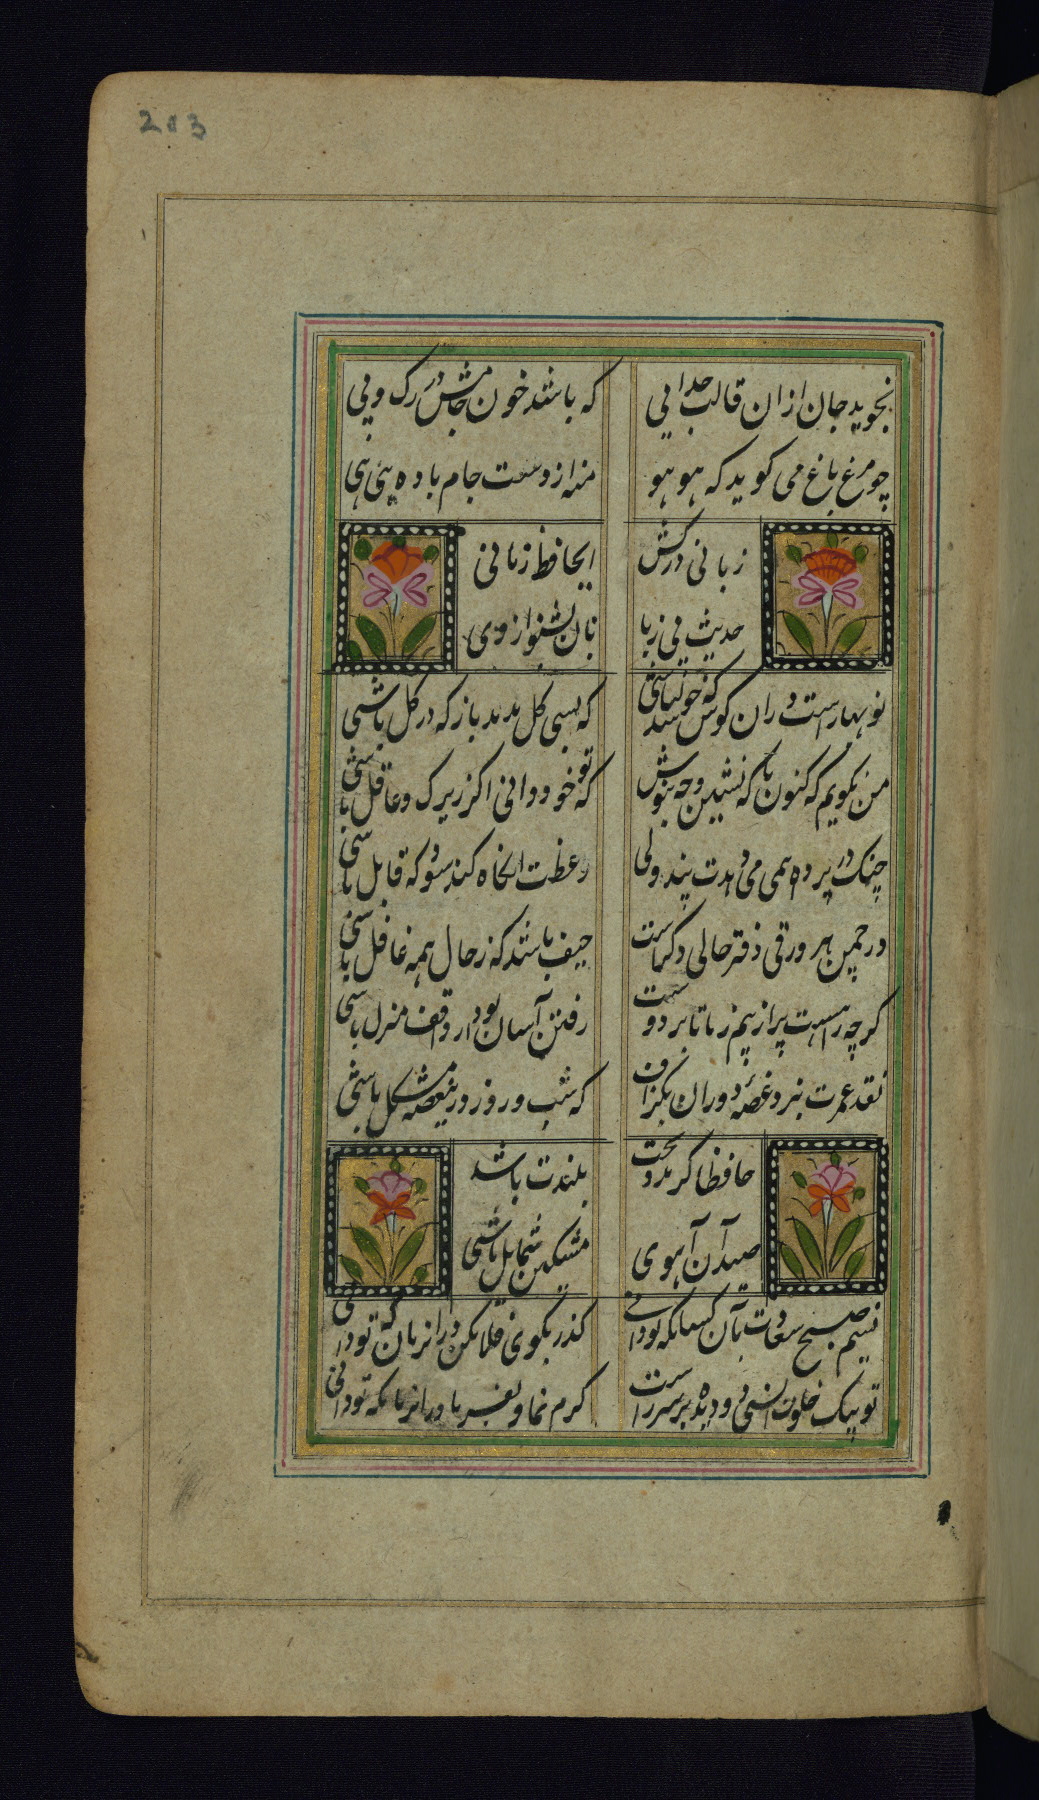 203
نجوید جان ازان قالب جدایی
که باشد خون جامش در رک و پی
چو مرغ باغ می کوید که هو هو
منه از دست جام باده هی هی
زبانی درکش
ایحافظ زمانی
حدیث بی زبا
نان بشنو از وی
نو بهارست دران کوش که خوشدل باشی
که بسی کل بدمد باز که در کل باشی
من نکویم که کنون با که نشین و چه بنوش
که تو خود دانی اکر زیرک و عاقل باشی
چنک در پرده همی می دهدت پند ولی
وعظت انکاه کند سود که قابل باشی
در چمن هر ورقی دفتر حالی دکرست
حیف باشد که ز حال همه غافل باشی
کرچه راهیست پر از بیم ز ما تا بر دوست
رفتن آسان بود ار واقف منزل باشی
نقد عمرت ببرد غصهٔ دوران بکزاف
که شب و روز درین قصه مشکل باشی
حافظا کر مدد بخت
بلندت باشد
صید آن آهوی
مشکین شمایل باشی
نسیم صبح سعادت بآن نشان که تو دانی
کذر بکوی فلان کن دران زمان که تو دانی
تو پیک خلوت رازی و دیده بر سر راهت
کرم نما و بران در انسان که تو دانی